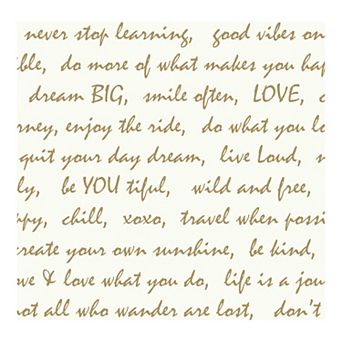 never stop learning, good vibes on
ble, do more of what makes you hap
dream BIG, smile often, LOVE,
rney, enjoy the ride, do what you lo
quit your day dream, live Loud,
ly, be YOU tiful, wild and free,
ppy, chill, xoxo, travel when possi
create your own sunshine, be kind,
ve & love what you do, life is a jou
not all who wander are lost, don't